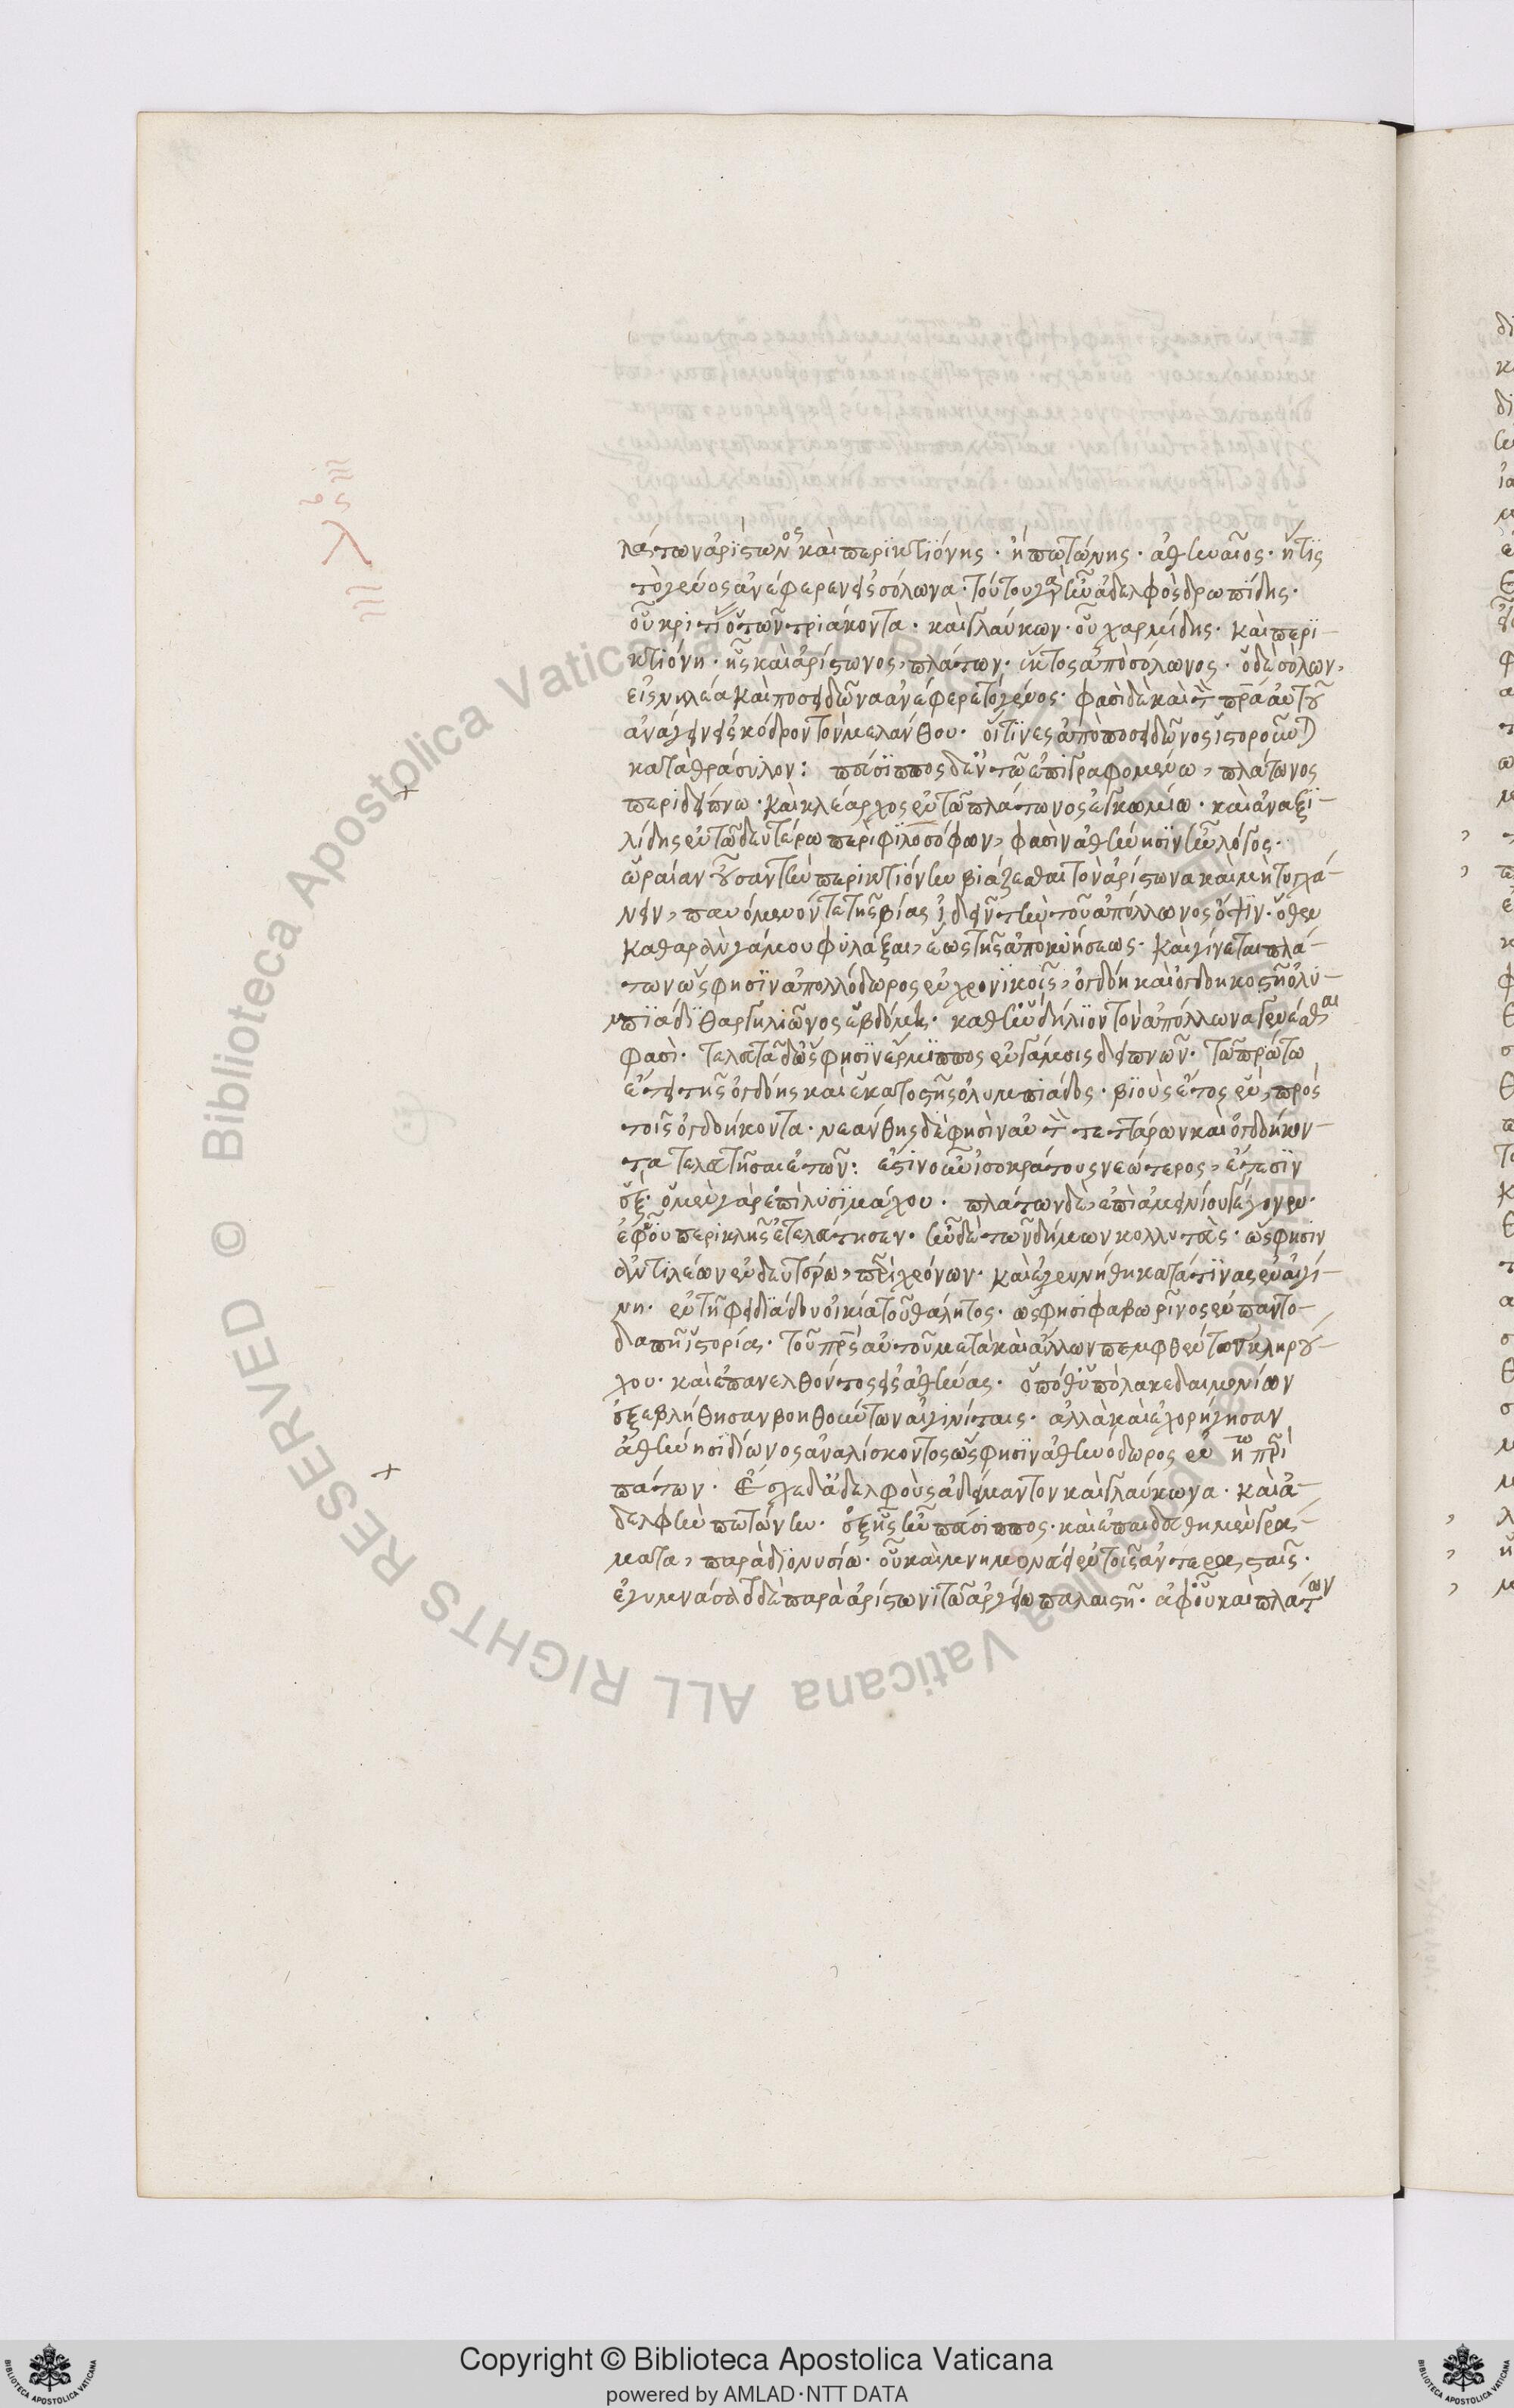 λάτων ἀρίστωνος καὶ περικτιόνης· ἢ πωτώνης· ἀθηναῖος· ἥτις
τὸ γένος ἀνέφερεν εἰς σόλωνα· τούτου γὰρ ἦν ἀδελφὸς δρωπίδης·
οὗ κριτίας τῶν τριάκοντα· καὶ γλαύκων· οὗ χαρμίδης· καὶ περι-
κτιόνη· ἧς καὶ ἀρίστωνος, πλάτων· ἕκτος ἀπὸ σόλωνος· ὁ δὲ σόλων,
εἰς νηλέα καὶ ποσειδῶνα ἀνέφερε τὸ γένος· φασὶ δὲ καὶ τὸν πρα αὐτοῦ
ἀνάγειν εἰς κόδρον τὸν μελάνθου· οἵτινες ἀπὸ ποσειδῶνος ἱστοροῦνται
κατὰ θράσυλον: πεύσιππος δ' ἐν τῶ ἐπιγραφομένω, πλάτωνος
περιδείπνω· καὶ κλέαρχος ἐν τῶ πλάτωνος ἐγκωμίω· καὶ ἀναξι-
λίδης ἐν τῶ δευτέρω περὶ φιλοσόφων, φασὶν ἀθήνησιν ἦν λόγος·
ὡραίαν οὖσαν τὴν περικτιόνην βιάζεσθαι τὸν ἀρίστωνα καὶ μὴ τυγχά-
νειν, παυόμενόν τε τῆς βίας ἰδεῖν τὴν τοῦ ἀπόλλωνος ὄψιν· ὅθεν
καθαρὰν γάμου φυλάξαι, ἕως τῆς ἀποκυήσεως· καὶ γίνεται πλά-
των ὥς φησιν ἀπολλόδωρος ἐν χρονικοῖς, ὀγδόη καὶ ὀγδοηκοστῆ ὀλυ-
μπιάδι θαργηλιῶνος ἑβδόμη· καθ' ἣν δήλιοι τὸν ἀπόλλωνα γενέσθαι
φασὶ· τελευτᾶ δὲ ὥς φησιν ἕρμιππος ἐν γάμοις δειπνῶν· τῶ πρώτω
ἔτει τῆς ὀγδόης καὶ ἑκατοστῆς ὀλυμπιάδος· βιοὺς ἔτος ἓν, πρὸς
τοῖς ὀγδοήκοντα· νεάνθης δέ φησιν αὐτὸν τεττάρων καὶ ὀγδοήκον-
τα τελευτῆσαι ἐτῶν: ἔστιν οὖν ἰσοκράτους νεώτερος, ἔτεσιν
ἕξ· ὁ μὲν γὰρ ἐπὶ λυσιμάχου· πλάτων δὲ, ἐπὶ ἀμεινίου γέγονεν·
ἐφ' οὗ περικλῆς ἐτελεύτησεν· ἦν δὲ τῶν δήμων κολλυτεὺς· ὥς φησιν
ἀντιλέων ἐν δευτέρω, περὶ χρόνων· καὶ ἐγεννήθη κατά τινας ἐν αἰγί-
νη· ἐν τῆ φειδιάδου οἰκία τοῦ θάλητος· ὥς φησι φαβωρῖνος ἐν παντο-
δαπῆ ἱστορία· τοῦ πρς αὐτοῦ μετὰ καὶ ἄλλων πεμφθέντων κληρού-
χου· καὶ ἐπανελθόντος εἰς ἀθήνας· ὁπόθ' ὑπὸ λακεδαιμονίων
ἐξεβλήθησαν βοηθούντων αἰγινίταις· ἀλλὰ καὶ ἐχορήγησεν
ἀθήνησι δίωνος ἀναλίσκοντος ὥς φησιν ἀθηνόδωρος ἐν τῶ η περὶ
πάτων· ἔσχε δ' ἀδελφοὺς ἀδείμαντον καὶ γλαύκωνα· καὶ ἀ-
δελφὴν πωτώνην· ἐξ ἧς ἦν πεύσιππος· καὶ ἐπαιδεύθη μὲν γράμ-
ματα, παρὰ διονυσίω· οὗ καὶ μνημονεύει ἐν τοῖς ἀντερασταῖς·
ἐγυμνάσατο δὲ παρὰ ἀρίστωνι τῶ ἀργείω παλαιστῆ· ἀφ' οὗ καὶ πλάτων
Copyright © Biblioteca Apostolica Vaticana
powered by AMLAD·NTT DATA